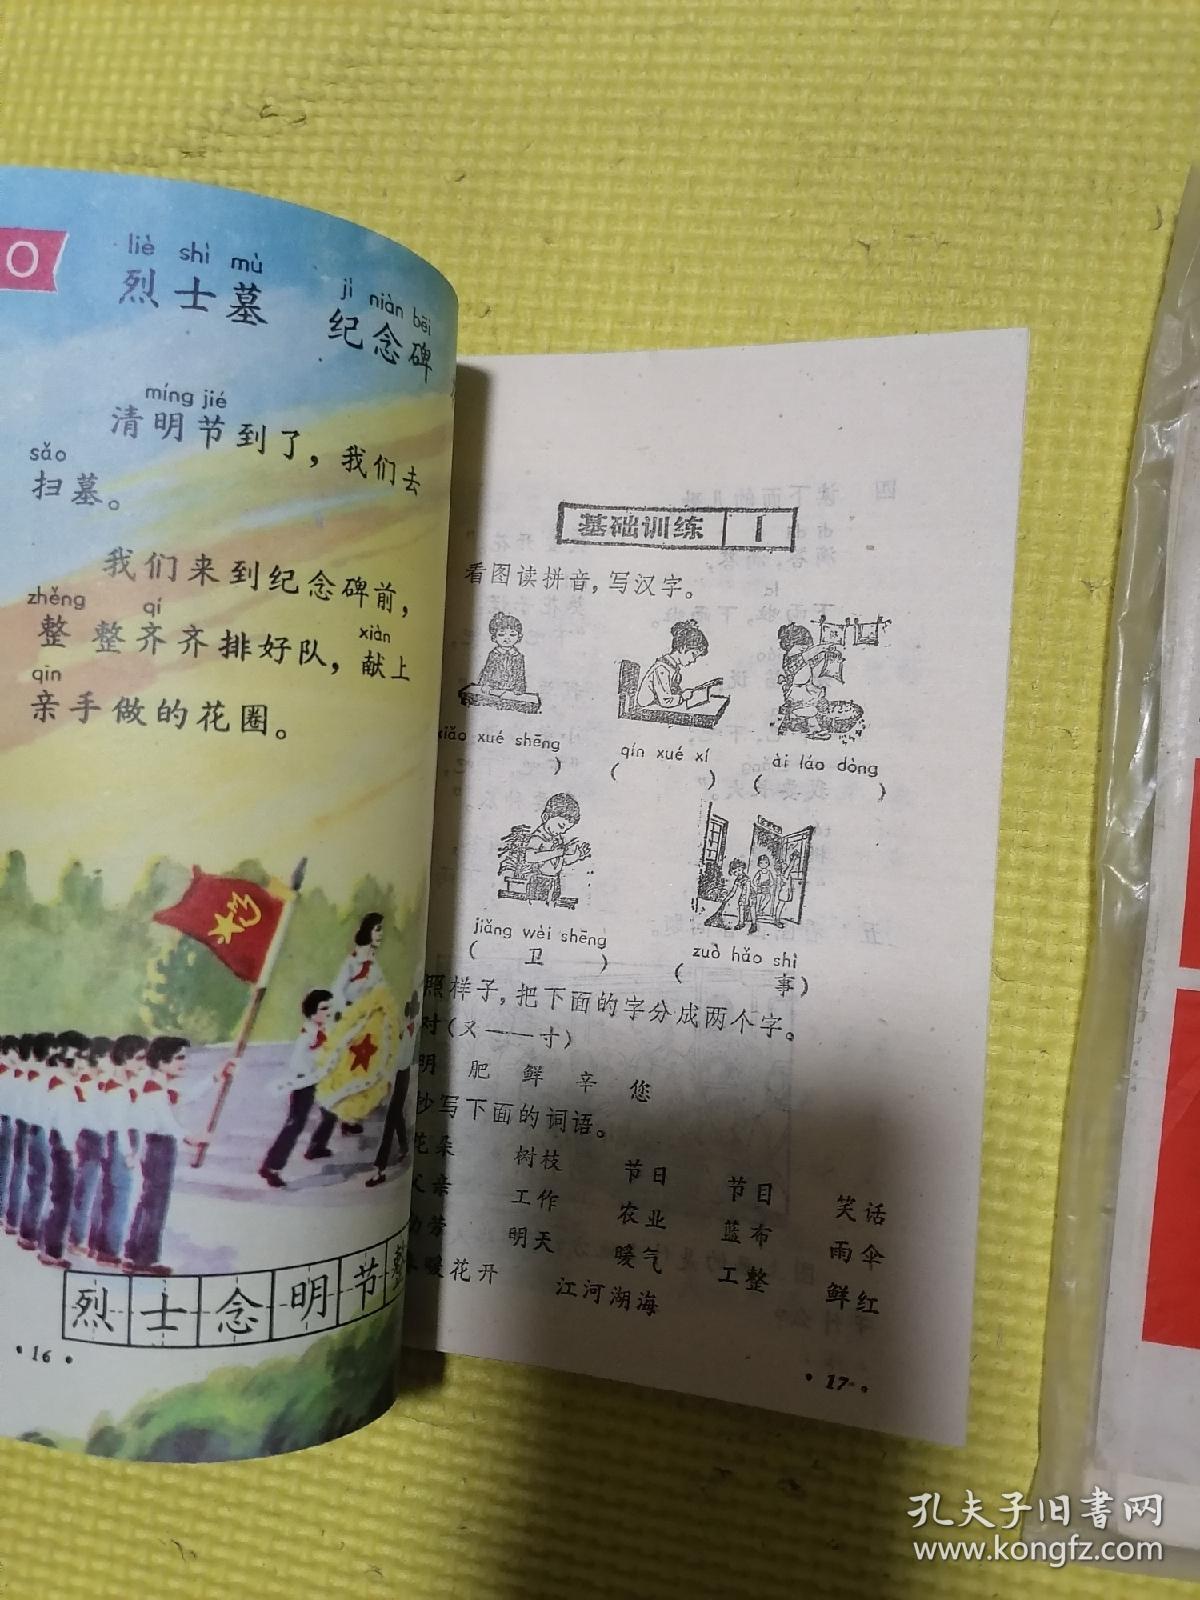 0
liè shì mù
烈士墓
jì niàn bēi
纪念碑
míng jié
清明节到了，我们去
sǎo
扫墓。
我们来到纪念碑前，
zhěng qí xiàn
整整齐齐排好队，献上
qīn
亲手做的花圈。
烈士念明节整
·16·
基础训练 1
看图读拼音，写汉字。
xiǎo xué shēng qín xué xí ài láo dòng
) ( ) ( )
jiǎng wèi shēng zuò hǎo shì
( 卫 ) ( 事)
照样子，把下面的字分成两个字。
对(又——寸)
明 肥 鲜 辛 您
抄写下面的词语。
花朵 树枝 节日 节目 笑话
父亲 工作 农业 蓝布 雨伞
劳 明天 暖气 工整 鲜红
暖花开 江河湖海
·17·
孔夫子旧书网
www.kongfz.com